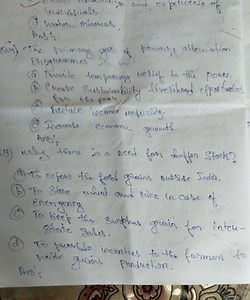 and expenses of
individuals.
Ans):
The primary goal of Poverty alleviation
Programmes is
a) Provide temporary relief to the poor.
b) Create Sustainability livelihood opportunities
for the poor
c) Reduce income
d) Increase economic growth.
Ans):
Why there is a need for buffer Stock?
a) To export the food grains outside India.
b) To Store wheat and rice in case of
emergency
c) To keep the surplus grain for inter-
State Sales.
d) To provide incentives to the farmers to
grains production.
Ans):